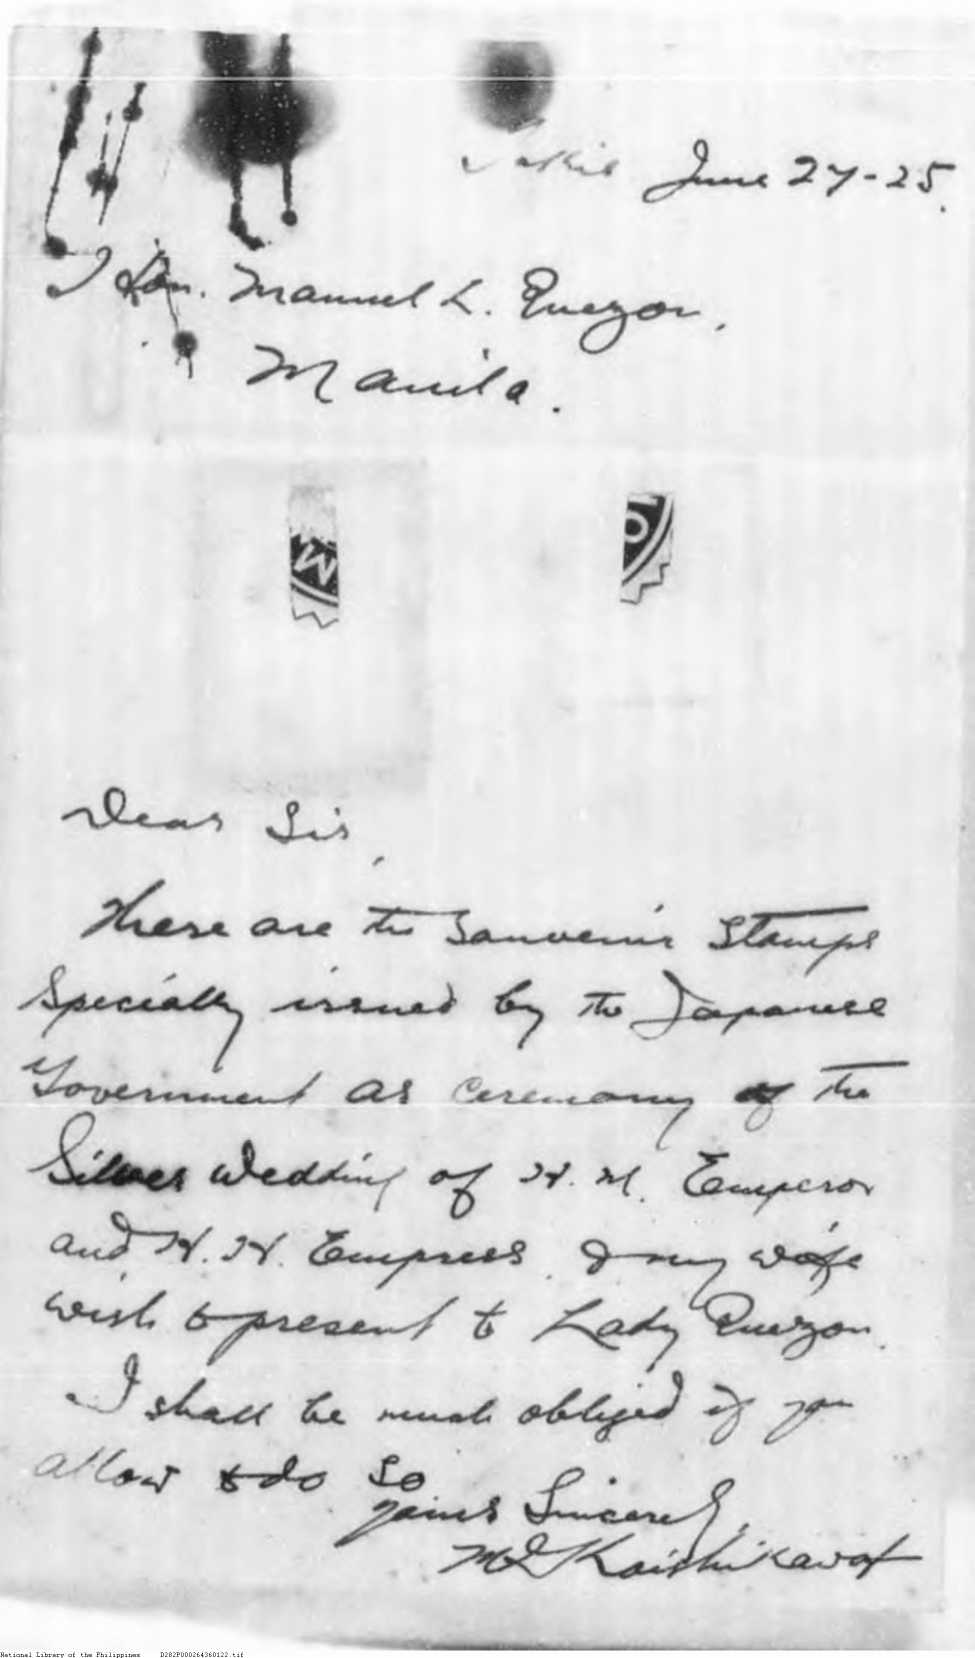 June 27-25.
Hon. Manuel L. Quezon,
Manila.
M
O
Dear Sir,
These are the Souvenir Stamps
specially issued by the Japanese
Government as ceremony of the
Silver Wedding of H. M. Emperor
and H. H. Empress. I my wife
wish to present to Lady Quezon.
I shall be much obliged if you
allow to do so
yours Sincerely,
National Library of the Philippines D282P000264360122.tif